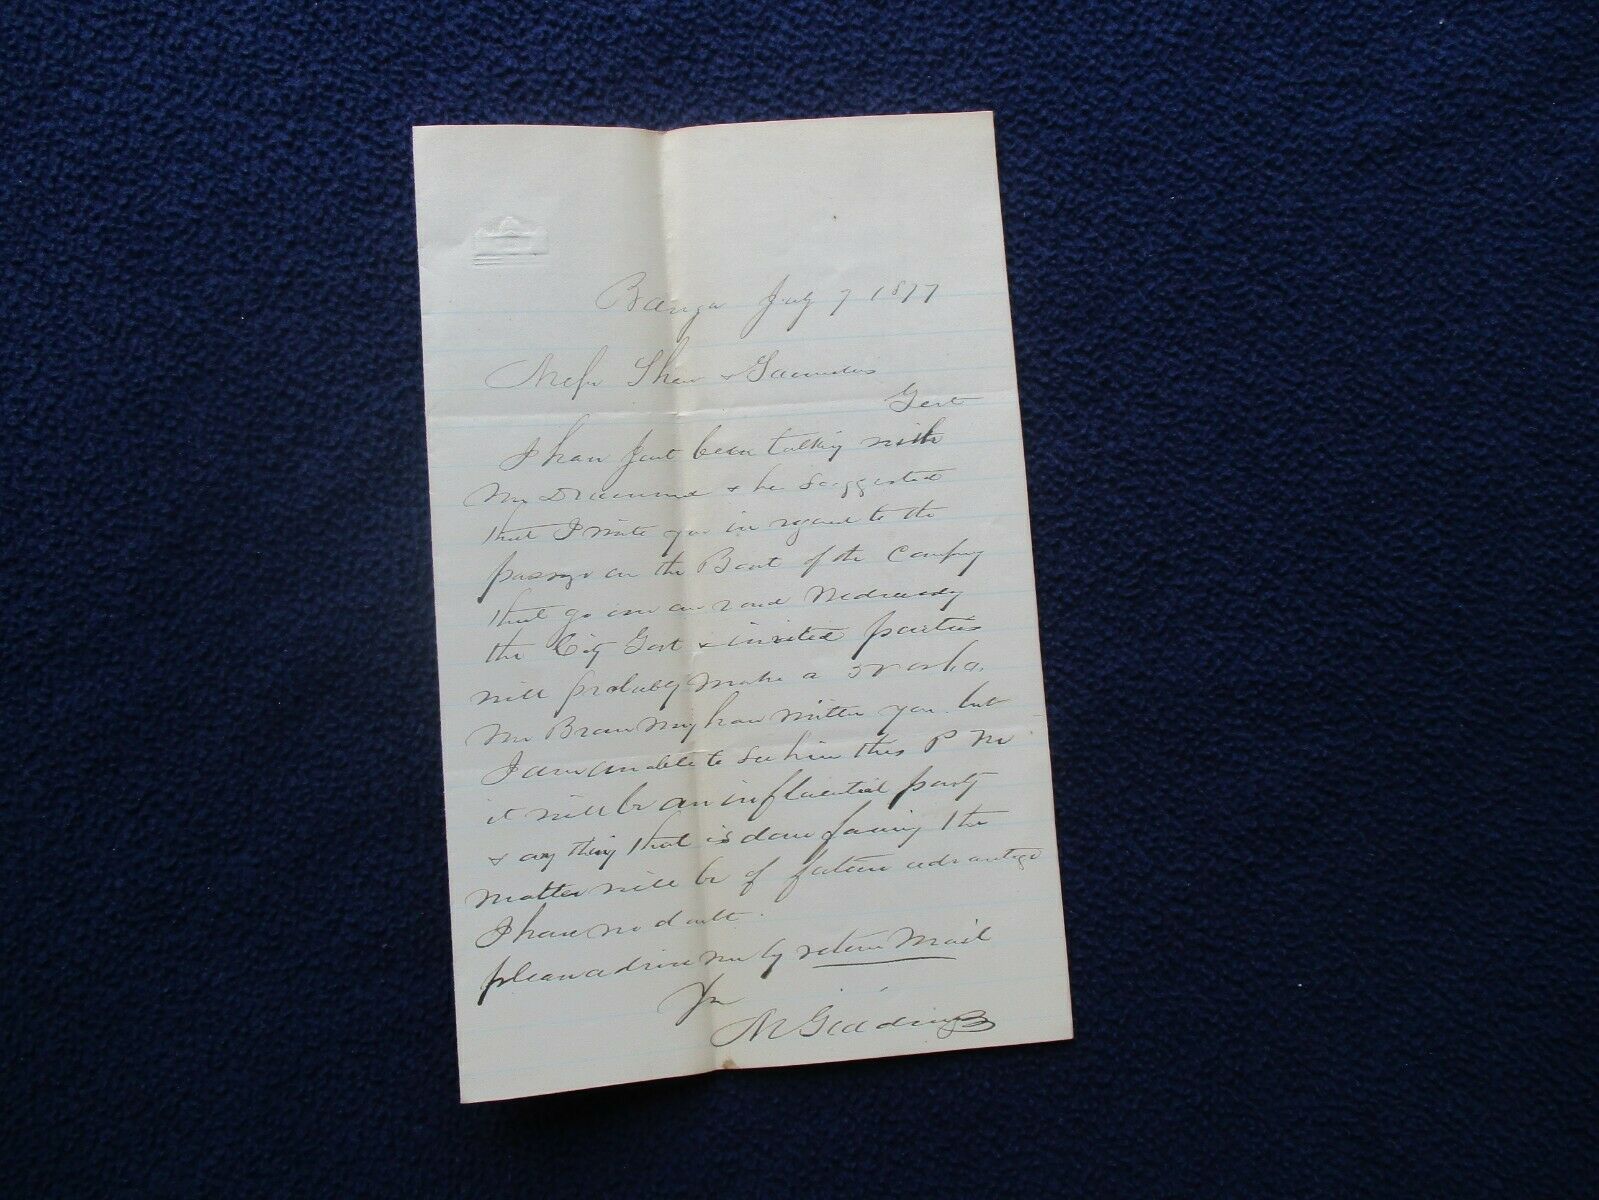 Bangor July 7 1877
Messrs Shaw & Saunders
Gent
I have Just been talking with
Mr Drummond & he Suggested
that I write you in regard to the
passage on the Boat of the Company
that go on an around Wednesday
the City Govt & invited parties
will probably make a
Mr Brown may have written you but
I am unable to See him this P M
it will be an influential party
& any thing that is done favoring the
matter will be of future advantage
I have no doubt.
please advise me by return Mail
Yrs
M Giddings